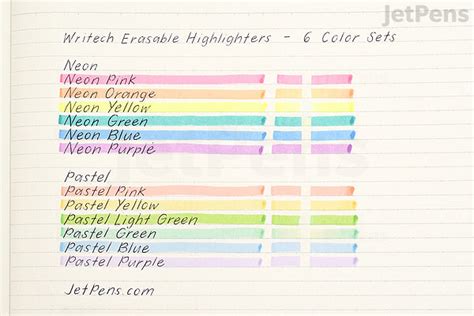 JetPens
Writech Erasable Highlighters - 6 Color Sets
Neon
Neon Pink
Neon Orange
Neon Yellow
Neon Green
Neon Blue
Neon Purple
JetPens
Pastel
Pastel Pink
Pastel Yellow
Pastel Light Green
Pastel Green
Pastel Blue
Pastel Purple
JetPens.com